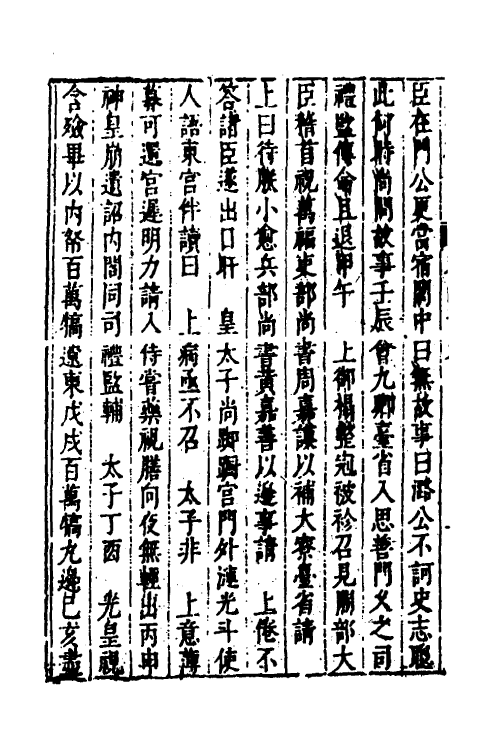 臣在門公更當宿閣中曰無故事曰潞公不訶史志聰
此何時尚問故事壬辰會九卿臺省入思善門久之司
禮監傳侖且退甲午　上御榻整冠被袗召見閣部大
臣稽首祝萬福吏部尚書周嘉謨以補大寮臺省請
上曰待朕小愈兵部尚書黃嘉善以邊事請　上倦不
答諸臣遂出日旰　皇太子尚踟躕宮門外漣光斗使
人語東宮伴讀曰　上病亟不召　太子非　上意薄
暮可還宮遲明力請入侍嘗藥視膳向夜無輕出丙申
神皇崩遺詔內閣同司禮監輔　太子丁酉　光皇視
含殮畢以內帑百萬犒遼東戊戌百萬犒九邊己亥盡